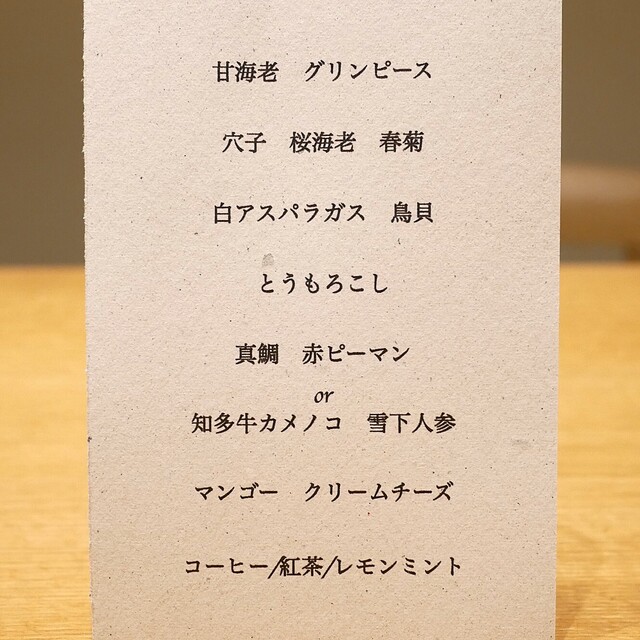 甘海老　グリンピース
穴子　桜海老　春菊
白アスパラガス　鳥貝
とうもろこし
真鯛　赤ピーマン
or
知多牛カメノコ　雪下人参
マンゴー　クリームチーズ
コーヒー/紅茶/レモンミント